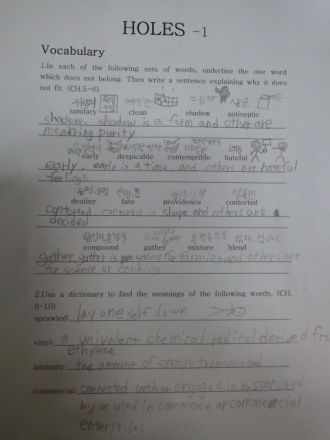 HOLES -1
Vocabulary
1.In each of the following sets of words, underline the one word
which does not belong. Then write a sentence explaining why it does
not fit. (CH.5-6)
sanitary clean shadow antiseptic
shadow, shadow is a form and other are
meaning purity
early despicable contemptible hateful
early, early is a time, and others are hateful
feelings
destiny fate providence contorted
contorted, is shape and others are
decided
compound gather mixture blend
gather, gather is used for farming and others are
for science or cooking
2.Use a dictionary to find the meanings of the following words. (CH.
9-10)
sprawled: lay oneself down
vinyl: a univalent chemical radical derived from
ethylene
intensity: the amount of energy transmitted
commercial: connected with or engaged in or sponsored
by or used in commerce or commercial
enterprises